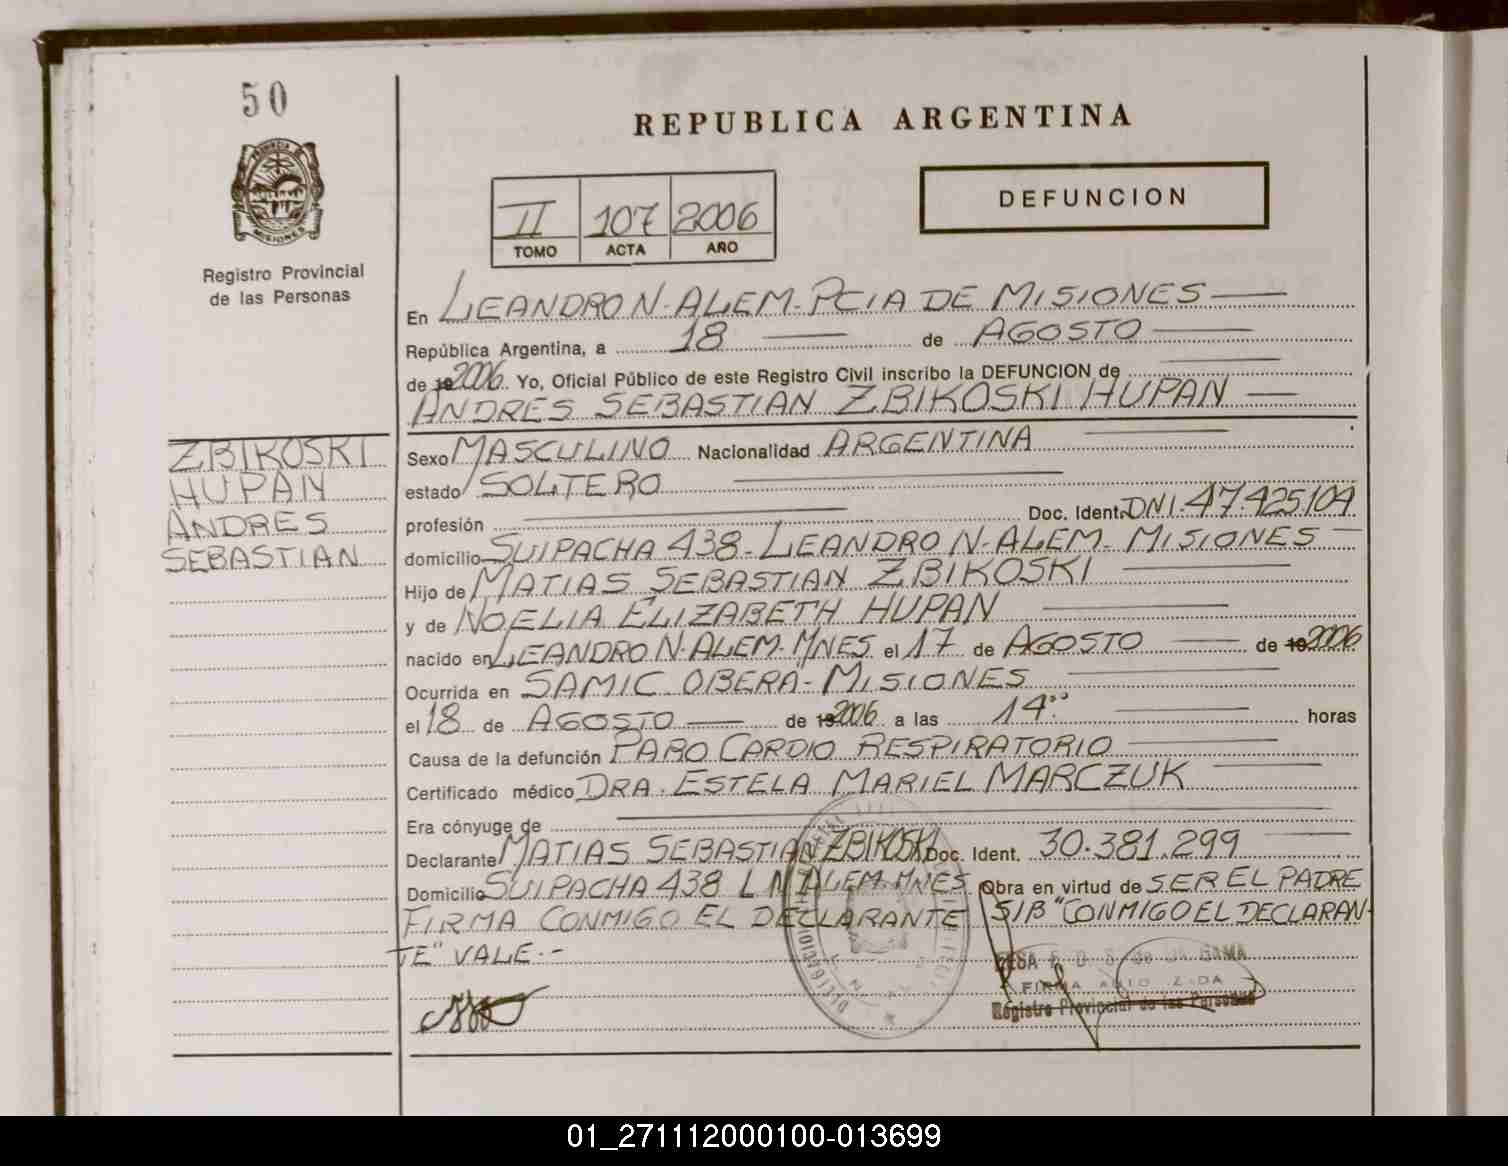 50
REPUBLICA ARGENTINA
II 107 2006
TOMO ACTA AÑO
DEFUNCION
PROVINCIA DE
MISIONES
Registro Provincial
de las Personas
En LEANDRO N. ALEM - PCIA DE MISIONES
República Argentina, a 18 de AGOSTO
de 19 2006. Yo, Oficial Público de este Registro Civil inscribo la DEFUNCION de
ANDRES SEBASTIAN ZBIKOSKI HUPAN
ZBIKOSKI
HUPAN
ANDRES
SEBASTIAN
Sexo MASCULINO Nacionalidad ARGENTINA
estado SOLTERO
profesión Doc. Ident. DNI. 47.425.104
domicilio SUIPACHA 438 - LEANDRO N. ALEM - MISIONES
Hijo de MATIAS SEBASTIAN ZBIKOSKI
y de NOELIA ELIZABETH HUPAN
nacido en LEANDRO N. ALEM - MNES el 17 de AGOSTO de 19 2006
Ocurrida en SAMIC OBERA - MISIONES
el 18 de AGOSTO de 19 2006 a las 14°° horas
Causa de la defunción PARO CARDIO RESPIRATORIO
Certificado médico DRA. ESTELA MARIEL MARCZUK
Era cónyuge de
Declarante MATIAS SEBASTIAN ZBIKOSKI Doc. Ident. 30.381.299
Domicilio SUIPACHA 438 L N ALEM - MNES Obra en virtud de SER EL PADRE
FIRMA CONMIGO EL DECLARANTE S/B "CONMIGO EL DECLARAN-
TE" VALE.-
FIRMA
Registro Provincial de las Personas
01_271112000100-013699